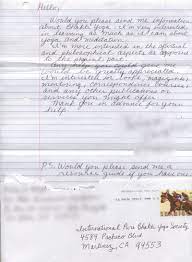 Hello,
Would you please send me information
about Bhakti Yoga. I'm very interested
in learning as much as I can about
yoga and meditation.
I'm more interested in the spiritual
and philosophical aspects as opposed
to the physical part.
Any help you could give me
would be greatly appreciated.
I'm interested in books, magazines,
workshops, correspondence courses
and any other publications or
services you might offer.
Thank you in advance for your
help.
P.S. Would you please send me a
resource guide if you have one.
International Pure Bhakti Yoga Society
4589 Pacheco Blvd
Martinez, CA 94553